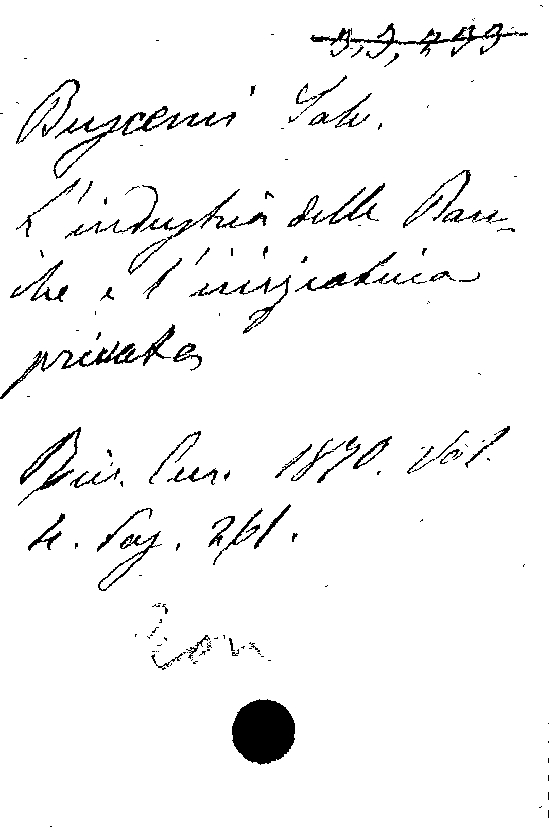 3,3,233
Buscemi Salv.
L'industria delle Ban-
che e l'iniziativa
privata
Riv. Eur. 1870. Vol.
4. Pag. 261.